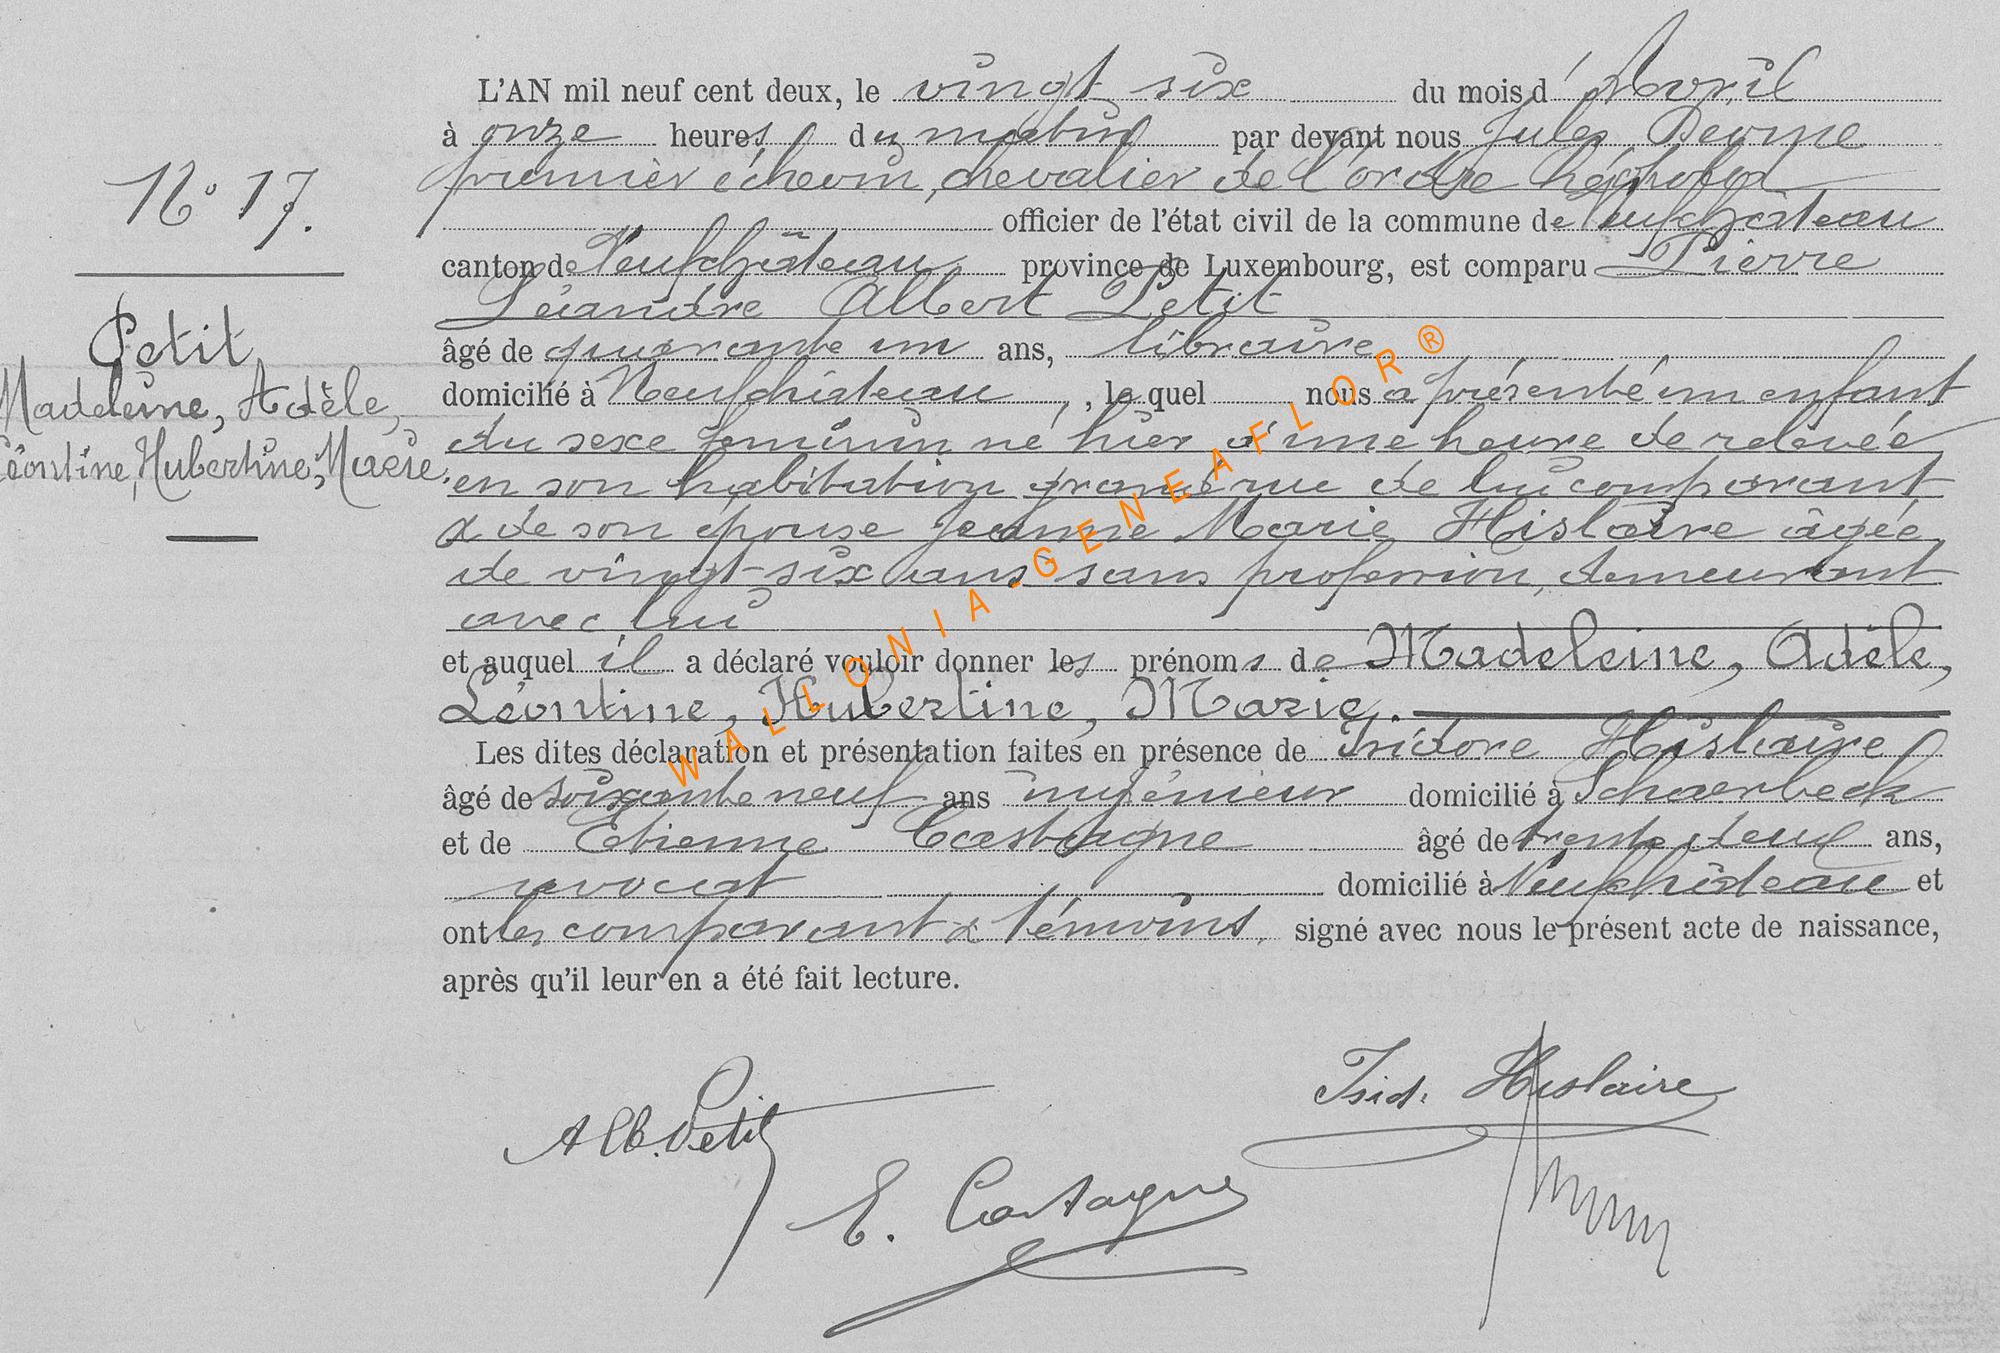 N° 17.
Petit
Madeleine, Adèle,
Léontine, Hubertine, Marie.
L'AN mil neuf cent deux, le vingt six du mois d'Avril
à onze heures du matin par devant nous Jules
premier échevin, chevalier de l'ordre Léopold
officier de l'état civil de la commune de Neufchâteau
canton de Neufchâteau province de Luxembourg, est comparu Pierre
Léandre Albert Petit
âgé de quarante un ans, libraire
domicilié à Neufchâteau, lequel nous a présenté un enfant
du sexe féminin né hier à une heure de relevée
en son habitation grand rue de lui comparant
& de son épouse Jeanne Marie Hislaire âgée
de vingt-six ans sans profession, demeurant
avec lui
et auquel il a déclaré vouloir donner les prénoms de Madeleine, Adèle,
Léontine, Hubertine, Marie.
Les dites déclaration et présentation faites en présence de Isidore Hislaire
âgé de soixante neuf ans ingénieur domicilié à Schaerbeek
et de Etienne Castagne âgé de trente deux ans,
avocat domicilié à Neufchâteau et
ont les comparant & témoins, signé avec nous le présent acte de naissance,
après qu'il leur en a été fait lecture.
Alb. Petit
Isid. Hislaire
E. Castagne
WALLONIA-GENEAFLOR®